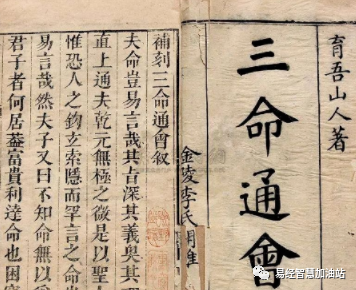 育吾山人著
三命通會
金陵李氏
補刻三命通會叙
夫命豈易言哉其旨深其義奥其
直上通夫乾元無極之微是以聖
惟恐人之鈎玄索隱而罕言之命
易言哉然夫子又曰不知命無以
君子者何居蓋富貴利達命也困
易经智慧加油站